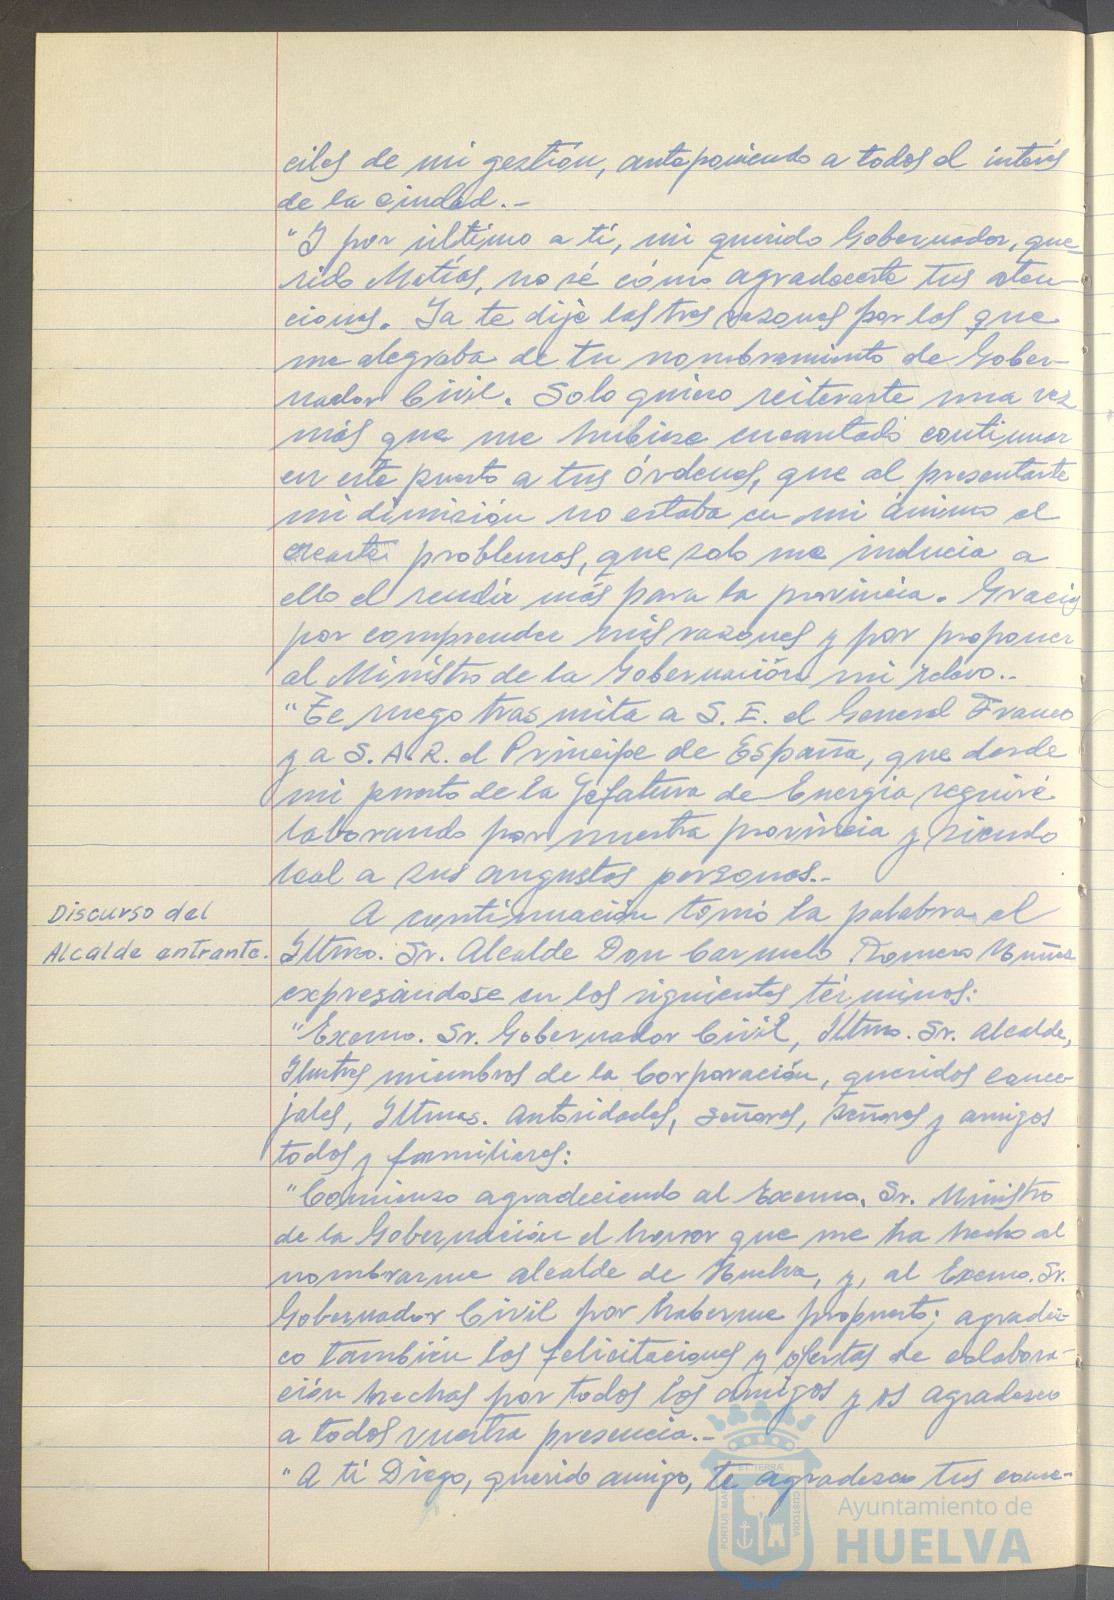 ciles de mi gestión, anteponiendo a todos el interés
de la ciudad.-
"Y por último a ti, mi querido Gobernador, que-
rido Matías, no sé cómo agradecerte tus aten-
ciones. Ya te dije las tres razones por las que
me alegraba de tu nombramiento de Gober-
nador Civil. Solo quiero reiterarte una vez
más que me hubiese encantado continuar
en este puesto a tus órdenes, que al presentarte
mi dimisión no estaba en mi ánimo el
crearte problemas, que solo me inducía a
ello el rendir más para la provincia. Gracias
por comprender mis razones y por proponer
al Ministro de la Gobernación mi relevo.-
"Te ruego trasmita a S. E. el General Franco
y a S. A. R. el Príncipe de España, que desde
mi puesto de la Jefatura de Energía seguiré
laborando por nuestra provincia y siendo
leal a sus augustas personas.-
Discurso del
Alcalde entrante.
A continuación tomó la palabra el
Iltmo. Sr. Alcalde Don Carmelo Romero Núñez
expresándose en los siguientes términos:
"Excmo. Sr. Gobernador Civil, Iltmo. Sr. Alcalde,
Ilustres miembros de la Corporación, queridos conce-
jales, Iltmas. autoridades, señoras, señores y amigos
todos y familiares:
"Comienzo agradeciendo al Excmo. Sr. Ministro
de la Gobernación el honor que me ha hecho al
nombrarme alcalde de Huelva, y, al Excmo. Sr.
Gobernador Civil por haberme propuesto; agradez-
co también las felicitaciones y ofertas de colabora-
ción hechas por todos los amigos y os agradezco
a todos vuestra presencia.-
"A ti Diego, querido amigo, te agradezco tus conse-
PORTUS MARIS ET TERRÆ CUSTODIA
Ayuntamiento de
HUELVA